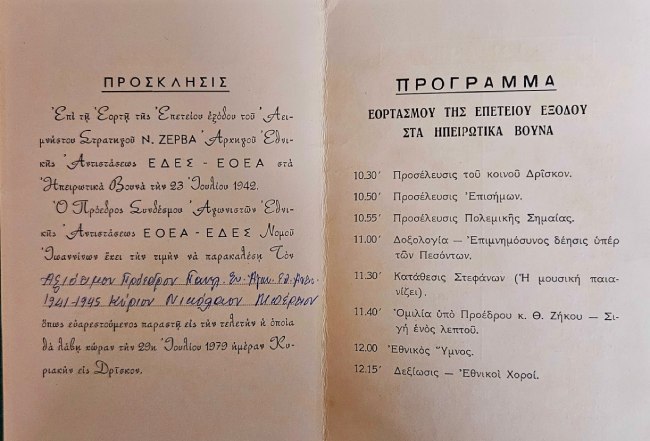 ΠΡΟΣΚΛΗΣΙΣ
Ἐπὶ τῇ Ἑορτῇ τῆς Ἐπετείου ἐξόδου τοῦ Ἀει-
μνήστου Στρατηγοῦ Ν. ΖΕΡΒΑ Ἀρχηγοῦ Ἐθνι-
κῆς Ἀντιστάσεως ΕΔΕΣ - ΕΟΕΑ στὰ
Ἠπειρωτικὰ Βουνὰ τὴν 23 Ἰουλίου 1942.
Ὁ Πρόεδρος Συνδέσμου Ἀγωνιστῶν Ἐθνι-
κῆς Ἀντιστάσεως ΕΟΕΑ - ΕΔΕΣ Νομοῦ
Ἰωαννίνων ἔχει τὴν τιμὴν νὰ παρακαλέσῃ Τὸν
Ἀξιότιμον Πρόεδρον
1941-1945 Κύριον Νικόλαον
ὅπως εὐαρεστούμενος παραστῇ εἰς τὴν τελετὴν ἡ ὁποία
θὰ λάβῃ χώραν τὴν 29η Ἰουλίου 1979 ἡμέραν Κυ-
ριακὴν εἰς Δρῖσκον.
ΠΡΟΓΡΑΜΜΑ
ΕΟΡΤΑΣΜΟΥ ΤΗΣ ΕΠΕΤΕΙΟΥ ΕΞΟΔΟΥ
ΣΤΑ ΗΠΕΙΡΩΤΙΚΑ ΒΟΥΝΑ
10.30' Προσέλευσις τοῦ κοινοῦ Δρῖσκον.
10.50' Προσέλευσις Ἐπισήμων.
10.55' Προσέλευσις Πολεμικῆς Σημαίας.
11.00' Δοξολογία — Ἐπιμνημόσυνος δέησις ὑπὲρ
τῶν Πεσόντων.
11.30' Κατάθεσις Στεφάνων (Ἡ μουσικὴ παια-
νίζει).
11.40' Ὁμιλία ὑπὸ Προέδρου κ. Θ. Ζήκου — Σι-
γὴ ἑνὸς λεπτοῦ.
12.00 Ἐθνικὸς Ὕμνος.
12.15' Δεξίωσις — Ἐθνικοὶ Χοροί.